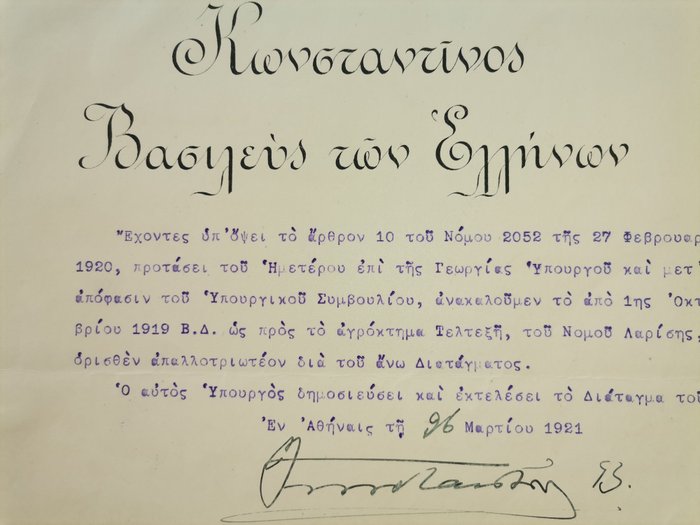 Κωνσταντῖνος
Βασιλεὺς τῶν Ἑλλήνων
Ἔχοντες ὑπ'ὄψει τὸ ἄρθρον 10 τοῦ Νόμου 2052 τῆς 27 Φεβρουαρ
1920, προτάσει τοῦ Ἡμετέρου ἐπὶ τῆς Γεωργίας Ὑπουργοῦ καὶ μετ'
ἀπόφασιν τοῦ Ὑπουργικοῦ Συμβουλίου, ἀνακαλοῦμεν τὸ ἀπὸ 1ης Ὀκτ
βρίου 1919 Β.Δ. ὡς πρὸς τὸ ἀγρόκτημα Τελτεξῆ, τοῦ Νομοῦ Λαρίσης,
ὁρισθὲν ἀπαλλοτριωτέον διὰ τοῦ ἄνω Διατάγματος.
Ὁ αὐτὸς Ὑπουργὸς δημοσιεύσει καὶ ἐκτελέσει τὸ Διάταγμα τοῦ
Ἐν Ἀθήναις τῇ 26 Μαρτίου 1921
Κωνσταντῖνος Β.